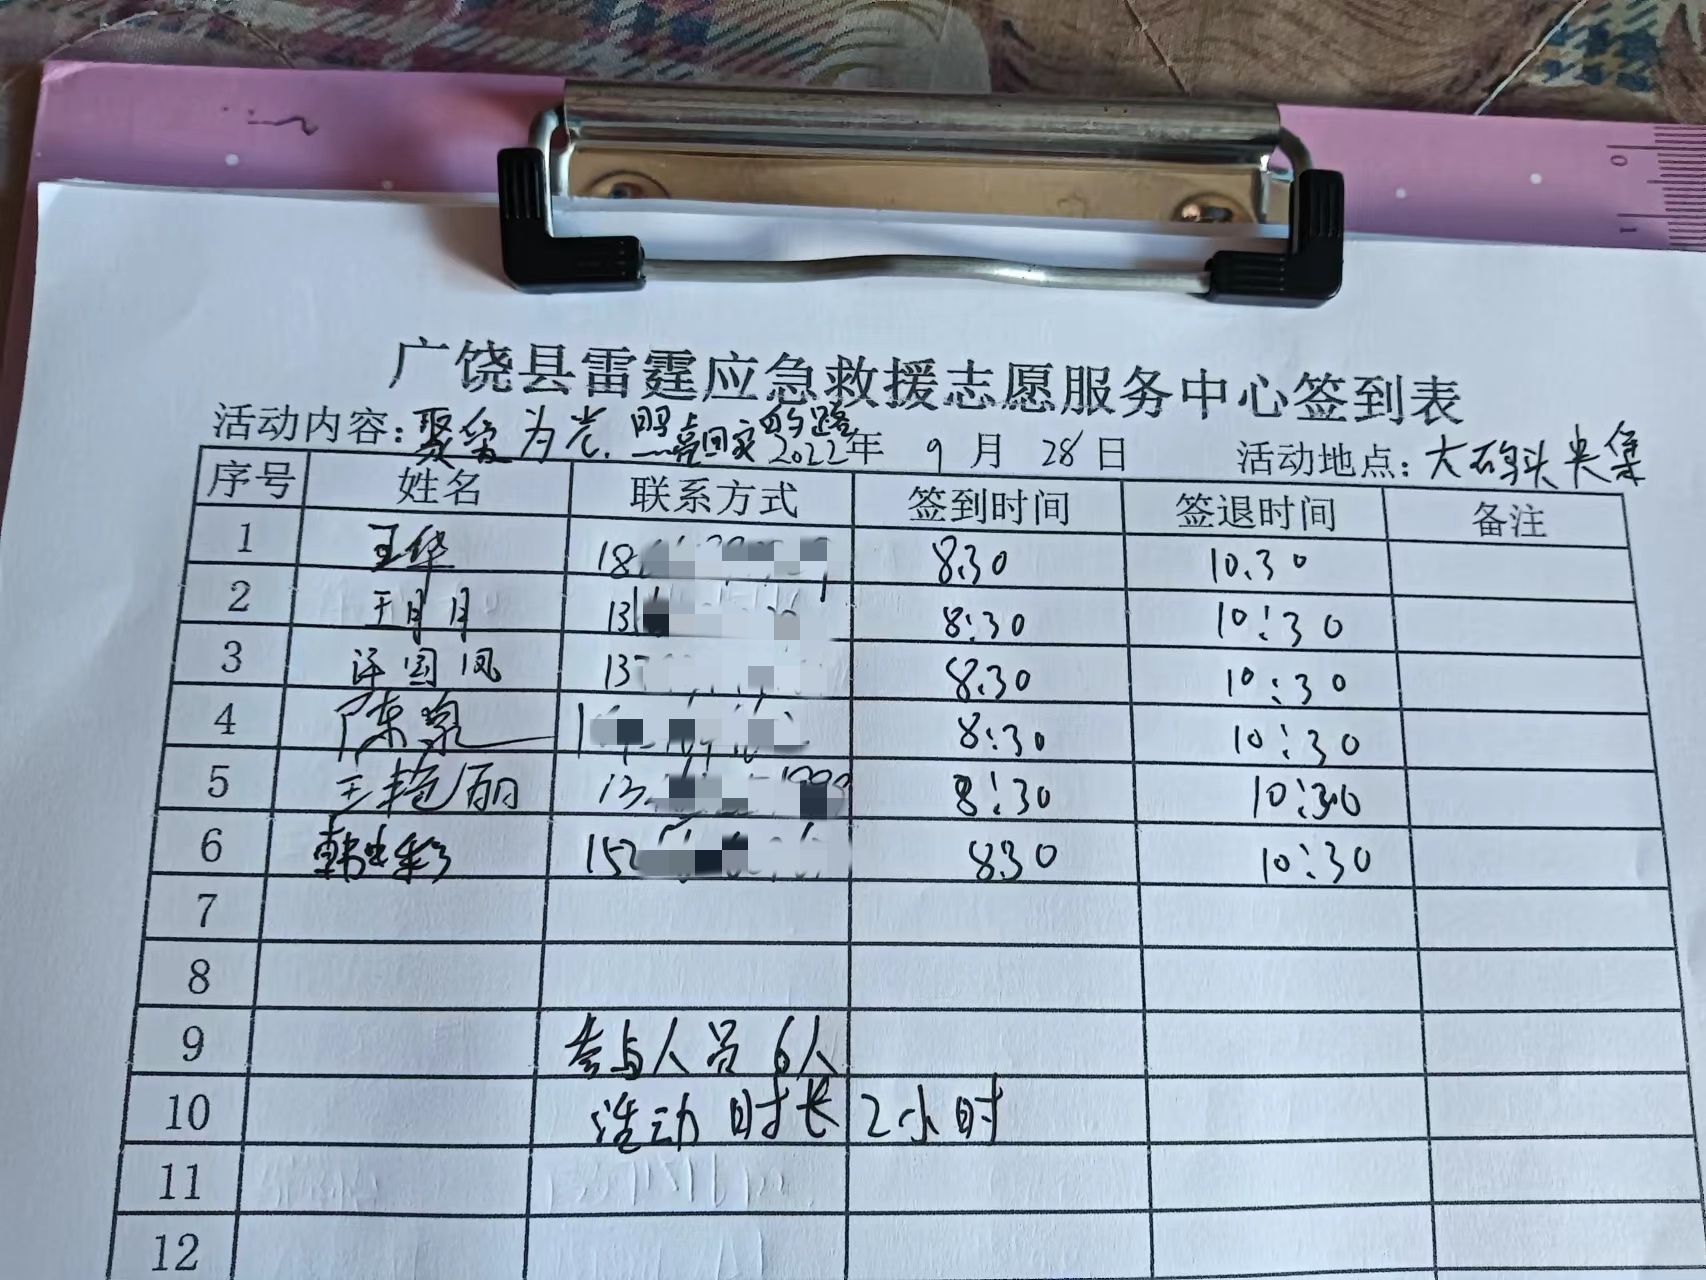 广饶县雷霆应急救援志愿服务中心签到表
活动内容：聚爱为光.照点亮回家的路 2022年 9月 28日 活动地点：大码头央集
序号 姓名 联系方式 签到时间 签退时间 备注
1 王华 18 8.30 10.30
2 王月月 131 8:30 10:30
3 许国凤 137 8.30 10:30
4 陈泉 1 8:30 10:30
5 王艳丽 13 8:30 10:30
6 韩 彩 152 830 10:30
7
8
9 参与人员6人
10 活动时长2小时
11
12
0
1